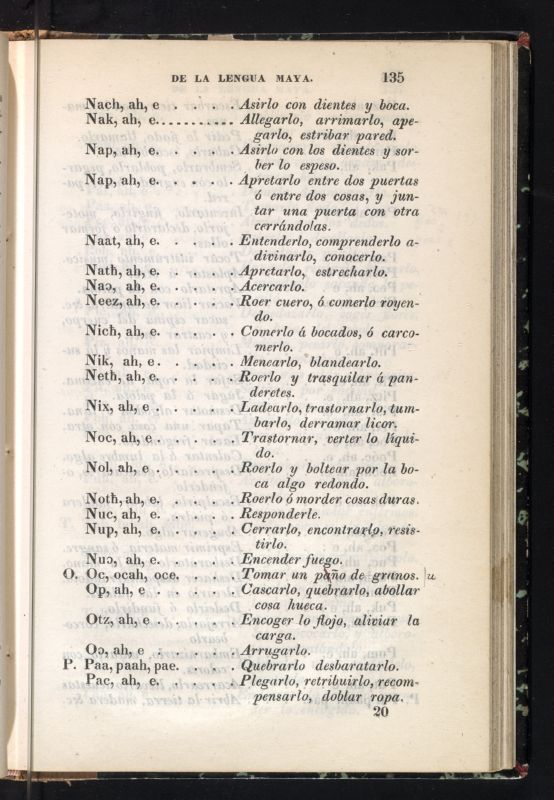 DE LA LENGUA MAYA. 135
Nach, ah, e . . . . . Asirlo con dientes y boca.
Nak, ah, e. . . . . . . . . . Allegarlo, arrimarlo, ape-
garlo, estribar pared.
Nap, ah, e. . . . . Asirlo con los dientes y sor-
ber lo espeso.
Nap, ah, e. . . . . Apretarlo entre dos puertas
ó entre dos cosas, y jun-
tar una puerta con otra
cerrándolas.
Naat, ah, e. . . . . Entenderlo, comprenderlo a-
divinarlo, conocerlo.
Nath, ah, e. . . . . Apretarlo, estrecharlo.
Naɔ, ah, e. . . . . Acercarlo.
Neez, ah, e. . . . . Roer cuero, ó comerlo royen-
do.
Nicħ, ah, e. . . . . Comerlo á bocados, ó carco-
merlo.
Nik, ah, e. . . . . Menearlo, blandearlo.
Netħ, ah, e. . . . . Roerlo y trasquilar á pan-
deretes.
Nix, ah, e . . . . . Ladearlo, trastornarlo, tum-
barlo, derramar licor.
Noc, ah, e . . . . . Trastornar, verter lo líqui-
do.
Nol, ah, e . . . . . Roerlo y boltear por la bo-
ca algo redondo.
Notħ, ah, e. . . . . Roerlo ó morder cosas duras.
Nuc, ah, e. . . . . Responderle.
Nup, ah, e. . . . . Cerrarlo, encontrarlo, resis-
tirlo.
Nuɔ, ah, e. . . . . Encender fuego.
O. Oc, ocah, oce. . . . . Tomar un paño de granos. u
Op, ah, e . . . . . Cascarlo, quebrarlo, abollar
cosa hueca.
Otz, ah, e . . . . . Encoger lo flojo, aliviar la
carga.
Oɔ, ah, e . . . . . Arrugarlo.
P. Paa, paah, pae. . . . . Quebrarlo desbaratarlo.
Pac, ah, e. . . . . Plegarlo, retribuirlo, recom-
pensarlo, doblar ropa.
20